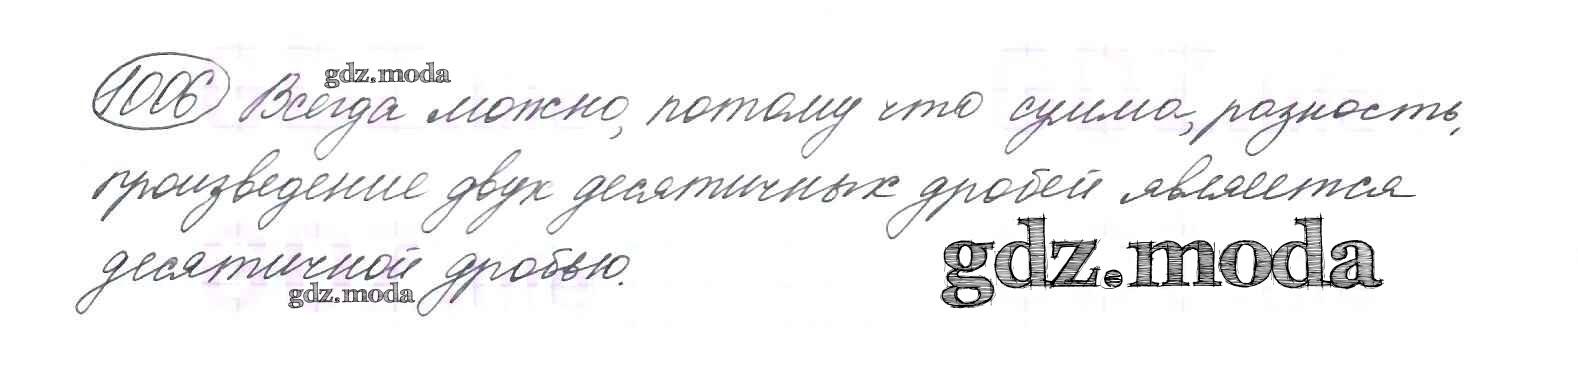 1006 Всегда можно, потому что сумма, разность,
произведение двух десятичных дробей является
десятичной дробью.
gdz.moda
gdz.moda
gdz.moda